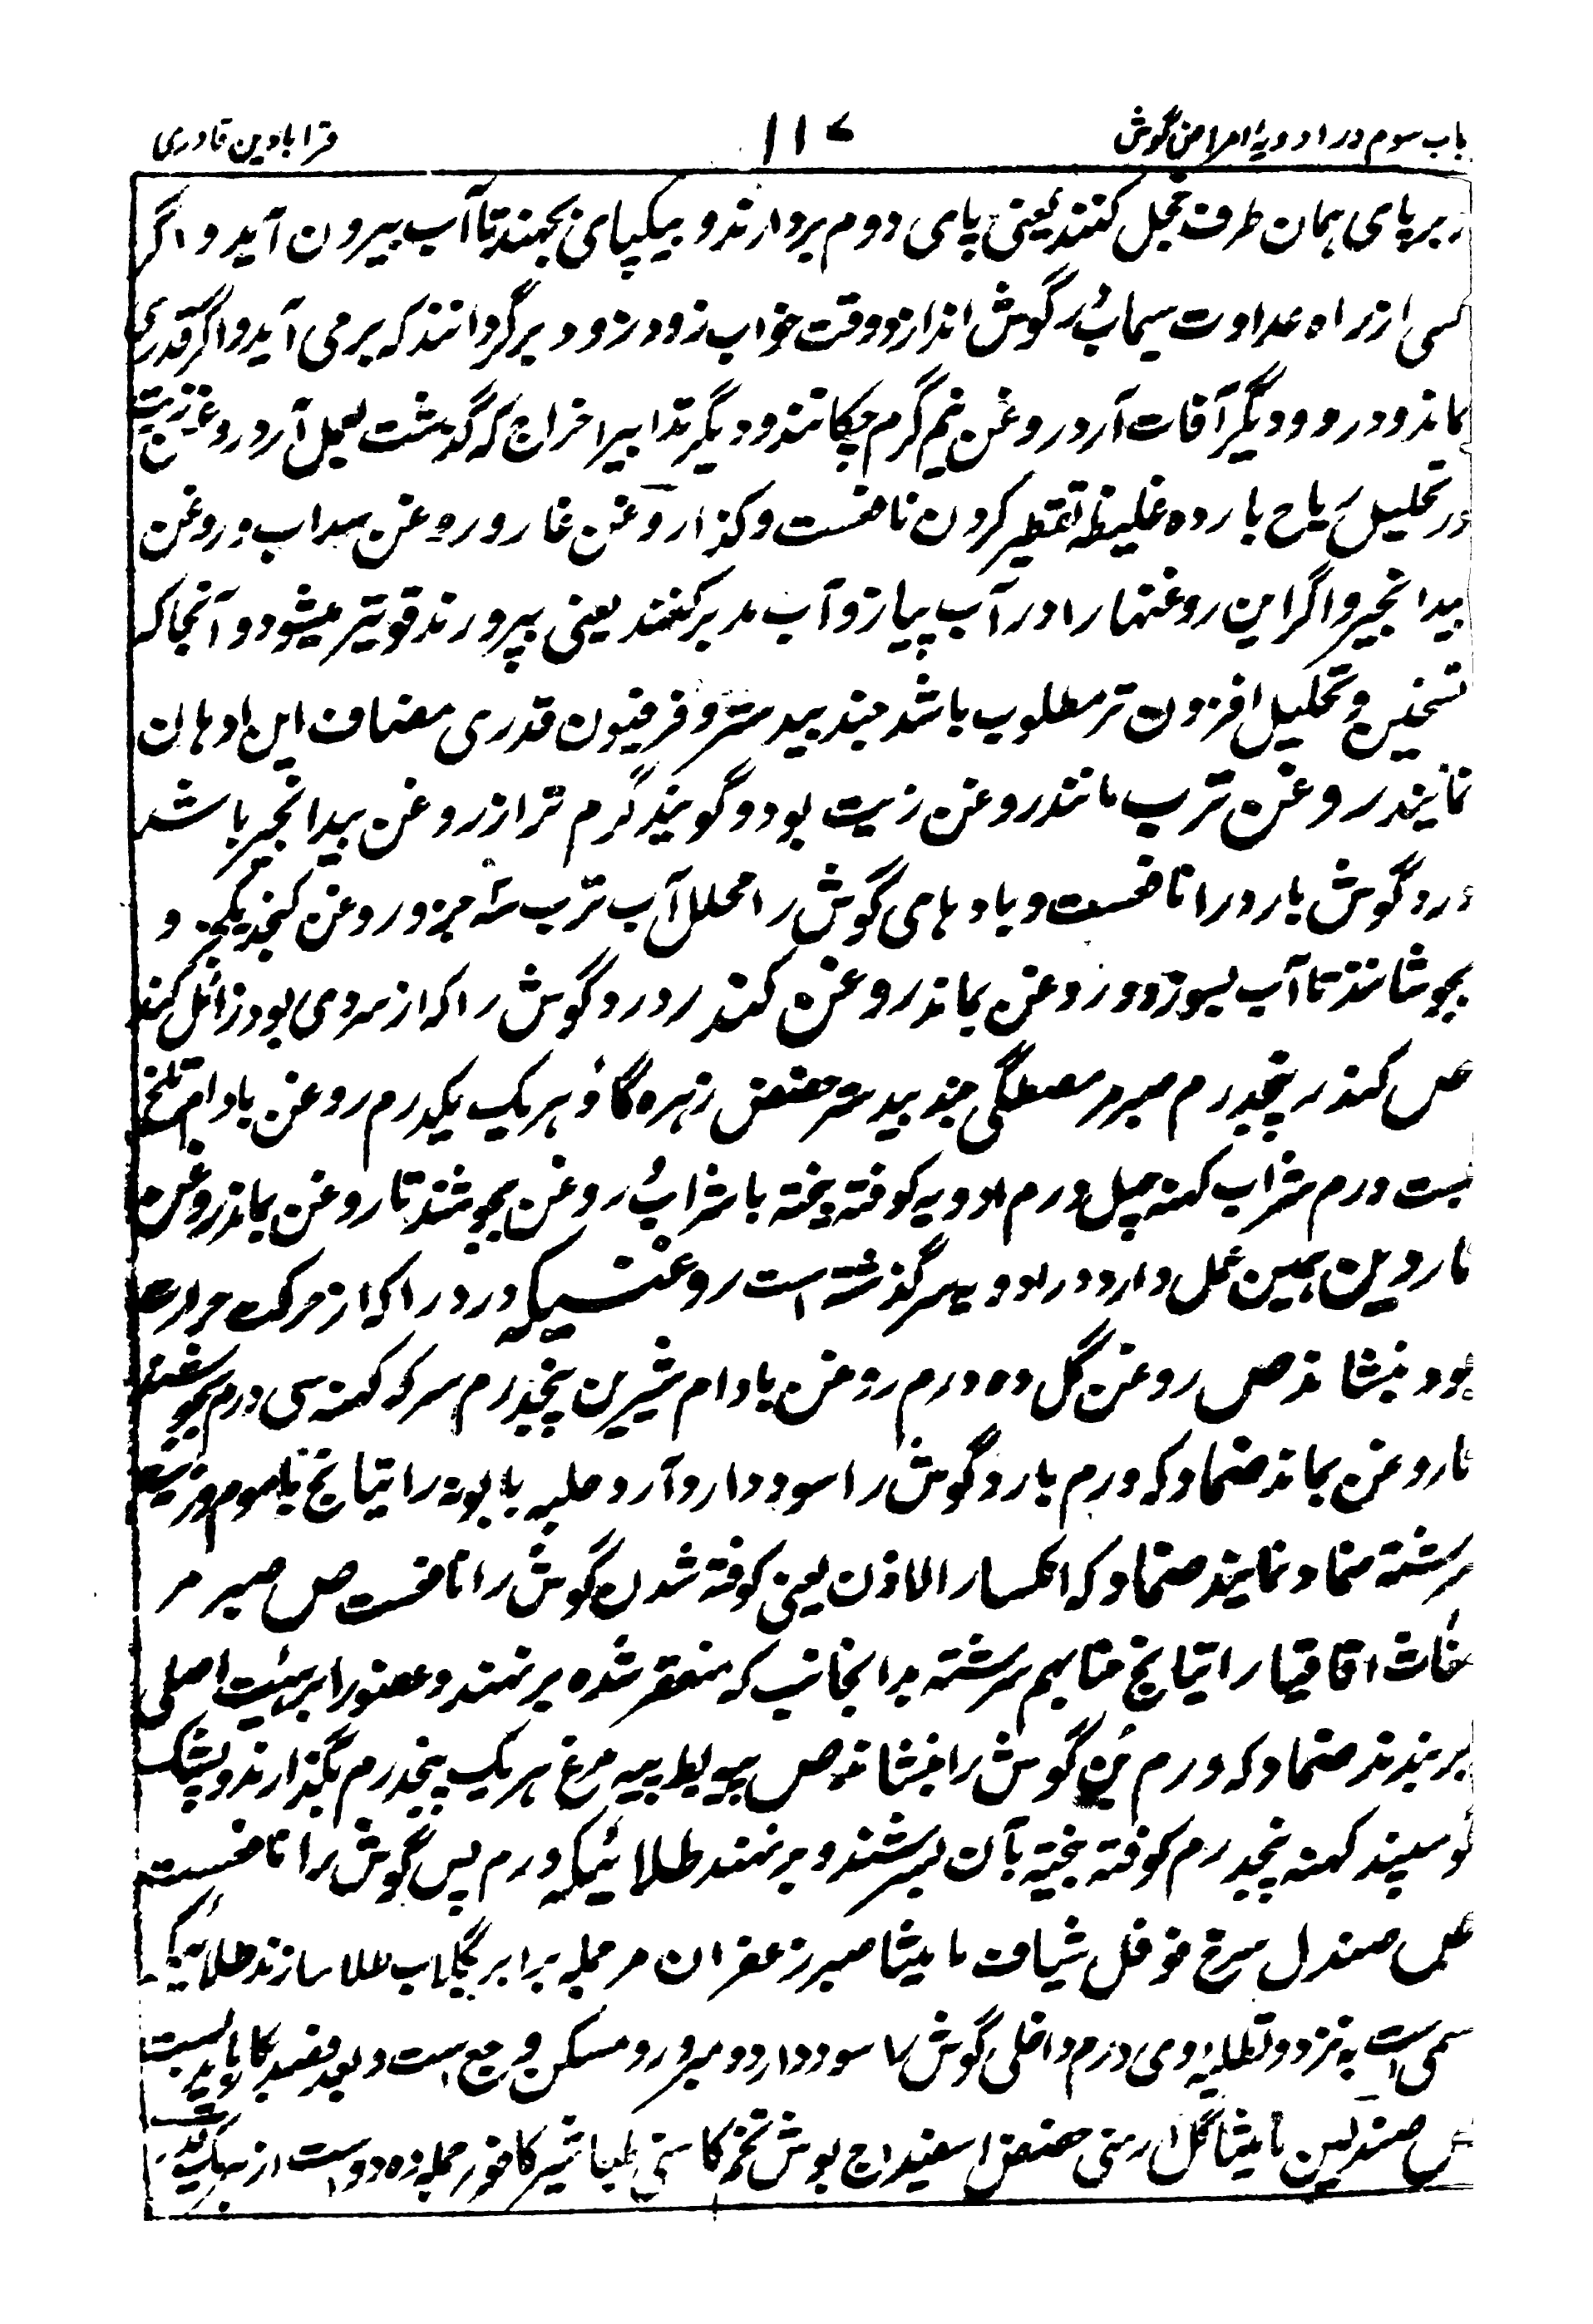 باب سوم در ادویۀ امراض گوش ۱۱۷ قرابادین قادری
بر پای همان طرف حجل کنند یعنی پای دوم بردارند و بیکپای بجهند تا آب بیرون آید و اگر
کسی از راه عداوت سیماب در گوش اندازد وقت خواب زود زود برگردانند که برمی آید و اگر قدری
بماند و درد و دیگر آفات آرد روغن نیم گرم چکانند و دیگر تدابیر اخراج که گذشت بعمل آرد روغن زیت
در تحلیل ریاح بارده غلیظه تقطیر کردن نافعست و کذا روغن غار و روغن سداب و روغن
بیدانجیر و اگر این روغنها را در آب پیاز و آب مدبر کنند یعنی بپرورند قویتر میشود و آنجا که
تسخین و تحلیل افزون تر مطلوب باشد جندبیدستر و فرفیون قدری مضاف این ادهان
نمایند روغن ترب مانند روغن زیت بود و گویند گرم تر از روغن بیدانجیر باشد
درد گوش بارد را نافعست و بادهای گوش را محلل آب ترب سه جزو روغن کنجد یکجزو
بجوشانند تا آب بسوزد و روغن بماند روغن کندر درد گوش را که از سردی بود زائل کند
ص کندر پنجدرم صبر مر مصطگی جندبیدستر حضض زهره گاو هریک یکدرم روغن بادام تلخ
بست درم شراب کهنه چهل درم ادویه کوفته پخته با شراب و روغن بجوشند تا روغن بماند روغن
ناردین همین عمل دارد در ادویه سر گذشته است روغنیکه درد را که از حرکت حرارت
بود بنشاند ص روغن گل ده درم روغن بادام شیرین پنجدرم سرکه کهنه سی درم بجوشند
تا روغن بماند ضماد که ورم بارد گوش را سود دارد آرد حلبه بابونه راتیانج با موم و زیت
سرشته ضماد نمایند ضماد که انکسار الاذن یعنی کوفته شدن گوش را نافعست ص صبر مر
مغاث اقاقیا راتیانج بهم سرشته بدانجانب که منقعر شده برنهند و عضو را بر هیئت اصلی
بربندند ضماد که ورم بن گوش را بنشاند ص پیه بط پیه مرغ هریک پنجدرم بگذارند و پشک
گوسپند کهنه پنجدرم کوفته بیخته بآن بسرشند و برنهند طلائیکه ورم پس گوش را نافعست
ص صندل سرخ فوفل شیاف مامیثا صبر زعفران مر جمله برابر بگلاب طلا سازند طلائیکه
سمی است به و تطلیه وی ورم داخلی گوش را سود دارد و مبرد و مسکن وجع است و بعد فصد کار باید بست
ص صندلین مامیثا گل ارمنی حضض اسفیداج بوش تخم کاسنی طباشیر کافور جمله ده دواست از هریک